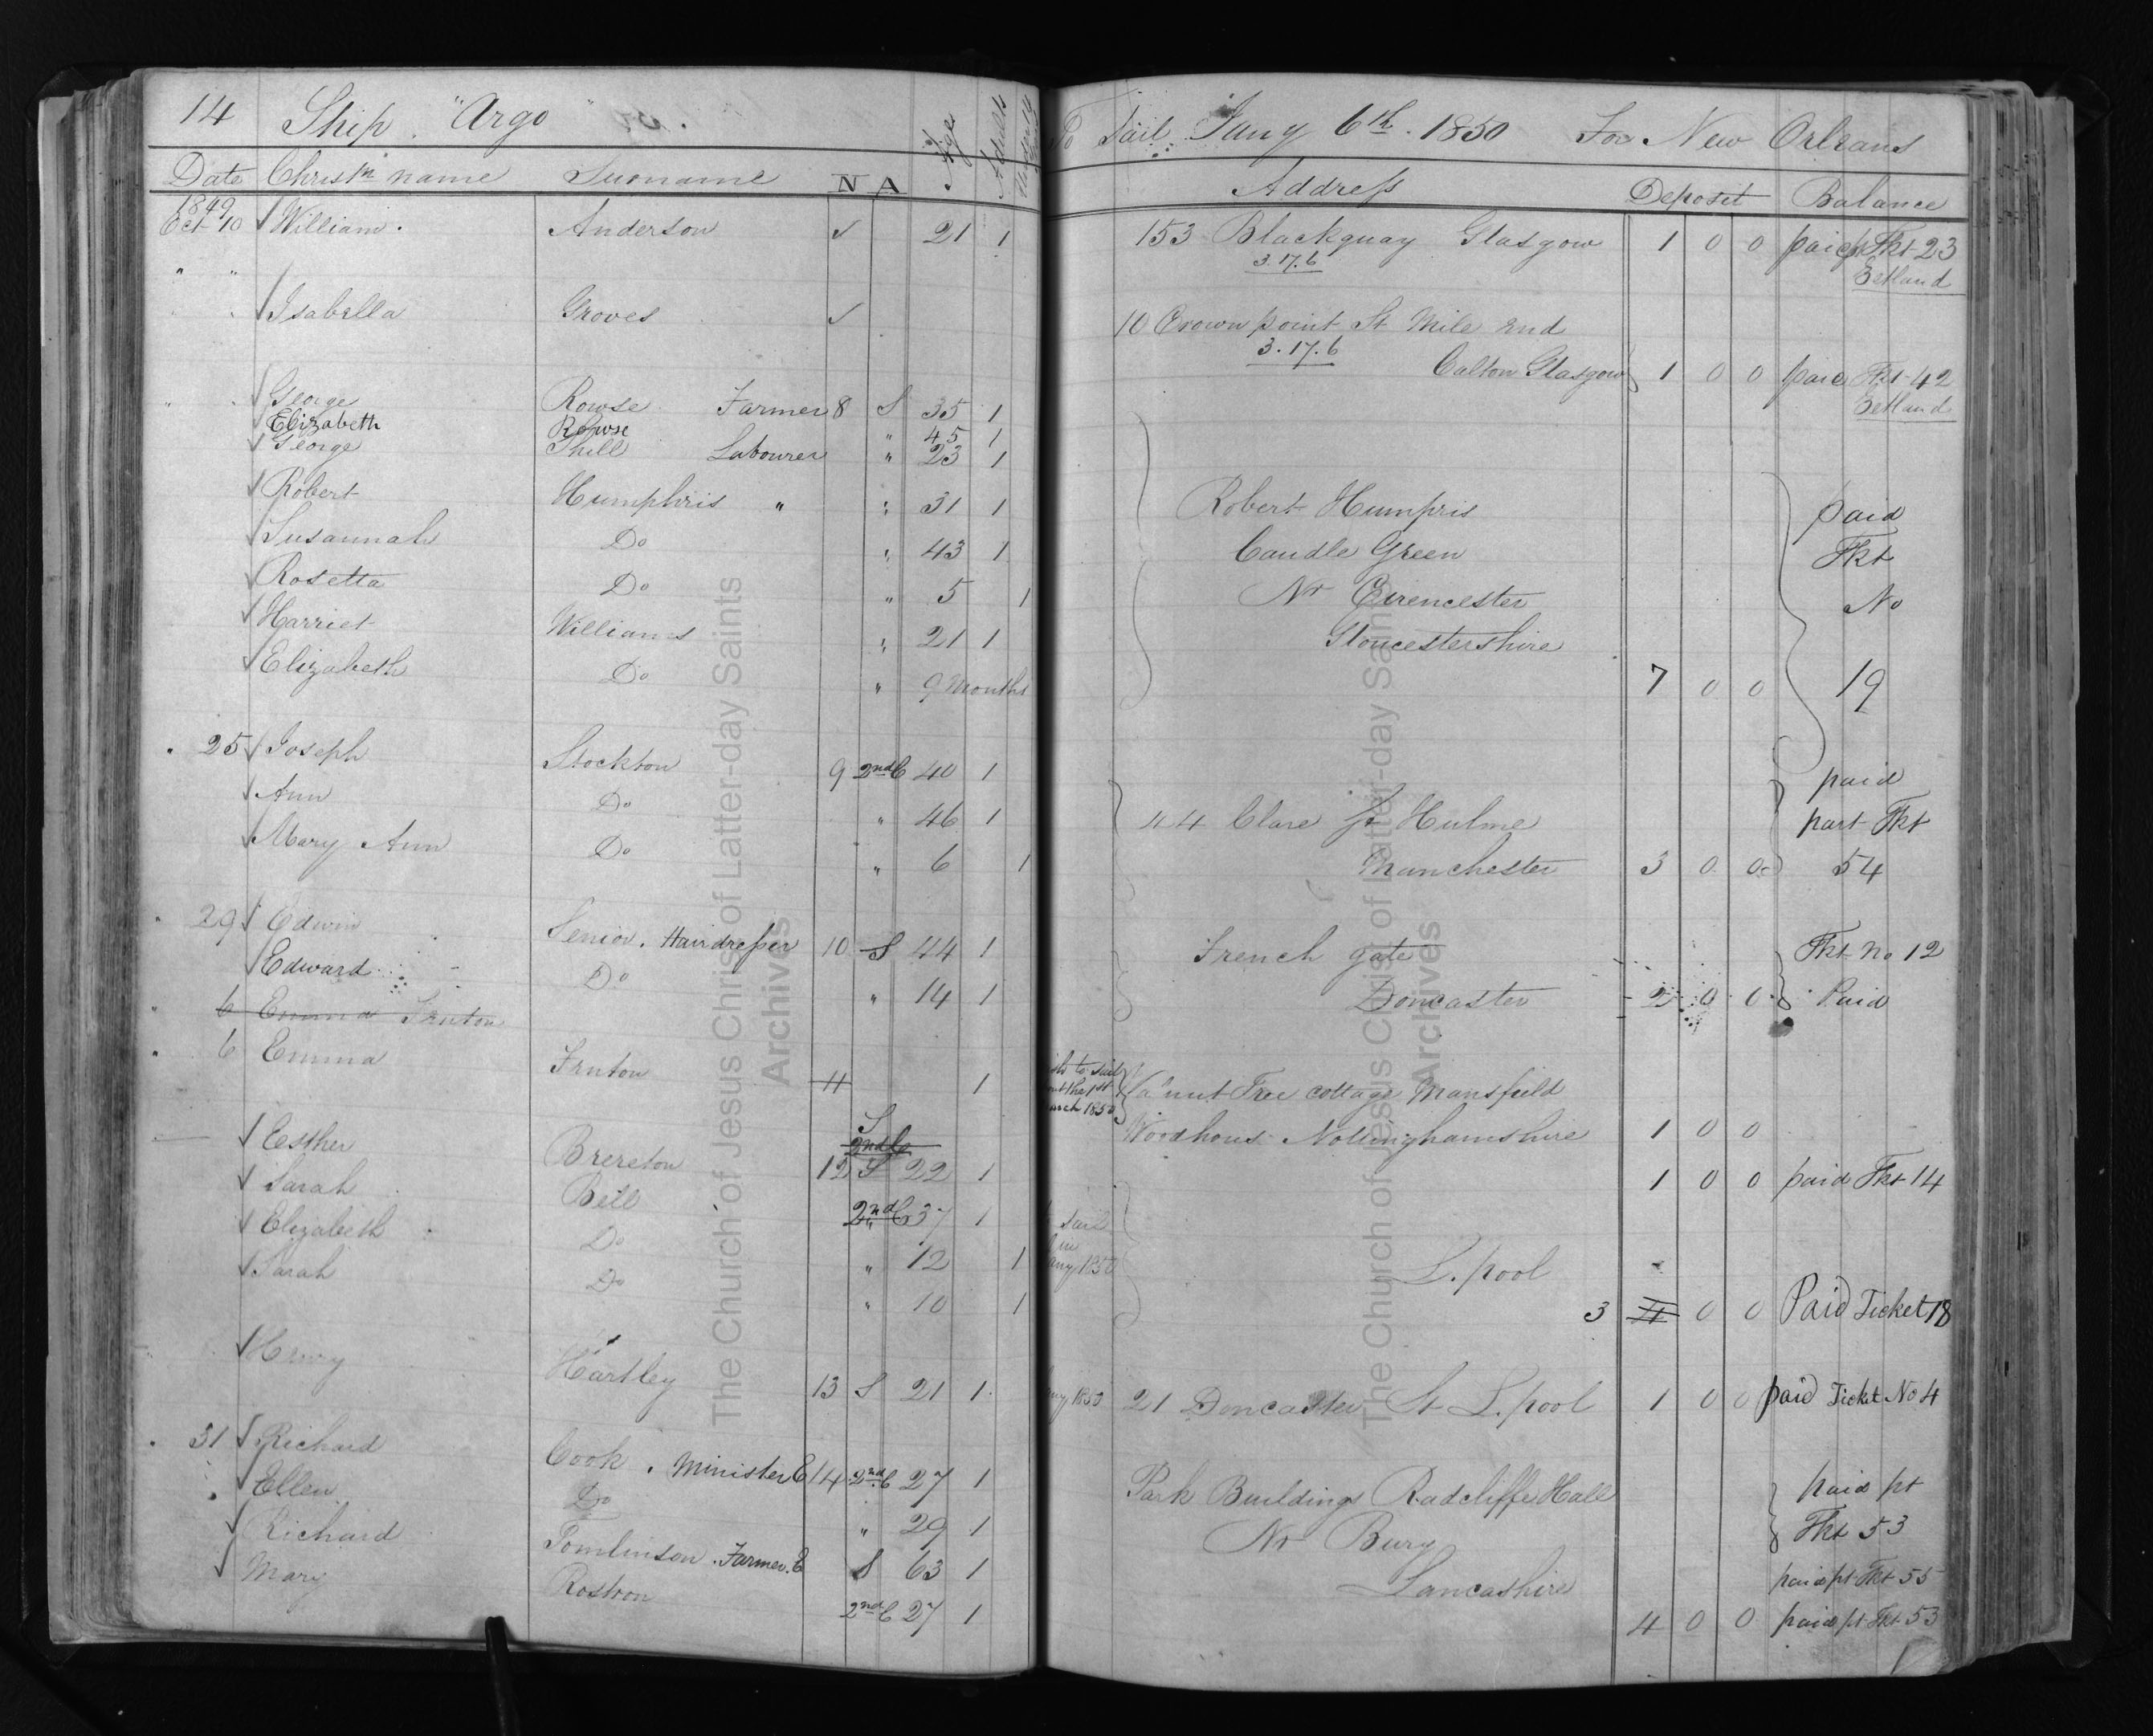 14 Ship "Argo" To Sail Jany 6th. 1850 For New Orleans
Date Christn name Surname N A Age Adults Address Deposit Balance
1849
Oct 10 William. Anderson ✓ 21 1 153 Blackquay Glasgow 1 0 0 paid Tkt 23
3.17.6 Zetland
" "
Isabella Groves ✓ 10 Crown point St Mile End
3.17.6
Calton Glasgow 1 0 0 paid Tkt 42
Zetland
George Rowse Farmer 8 S 35 1
Elizabeth Rowse " 45 1
George Shill Labourer " 23 1
Robert Humphris " " 31 1 Robert Humpris paid
Susannah Do " 43 1 Caudle Green Tkt
Rosetta Do " 5 1 Nr Cirencester No
Harriet Williams " 21 1 Gloucestershire
Elizabeth Do " 9 Months 7 0 0 19
" 25 Joseph Stockton 9 2nd C 40 1 paid
Ann Do " 46 1 44 Clare St Hulme part Tkt
Mary Ann Do " 6 1 Manchester 3 0 0 54
" 29 Edwin Senior. Hairdresser 10 S 44 1 French gate Tkt no 12
Edward Do " 14 1 Doncaster 2 0 0 Paid
" 6 Emma Fenton
" 6 Emma Fenton 11 1 nut Tree cottage Mansfield
Woodhous Nottinghamshire 1 0 0
S
2nd C
Esther Brereton 12 S 22 1 1 0 0 paid Tkt 14
Sarah Bell 2nd C 37 1
Elizabeth Do " 12 1 L.pool
Sarah Do " 10 1 3 4 0 0 Paid Ticket 18
Henry Hartley 13 S 21 1 1850 21 Doncaster St L.pool 1 0 0 paid Ticket No 4
" 31 Richard Cook. Minister E 14 2nd C 27 1 Park Buildings Radcliffe Hall paid pt
Ellen Do " 29 1 Nr Bury Tkt 53
Richard Tomlinson. Farmer. E S 63 1 Lancashire paid pt Tkt 55
Mary Rostron 2nd C 27 1 4 0 0 paid pt Tkt 53
The Church of Jesus Christ of Latter-day Saints
Archives
The Church of Jesus Christ of Latter-day Saints
Archives